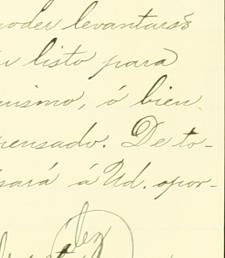 poder levantarse
listo para
mismo, ó bien
pensado. De to-
sará á Ud. opor-
tez